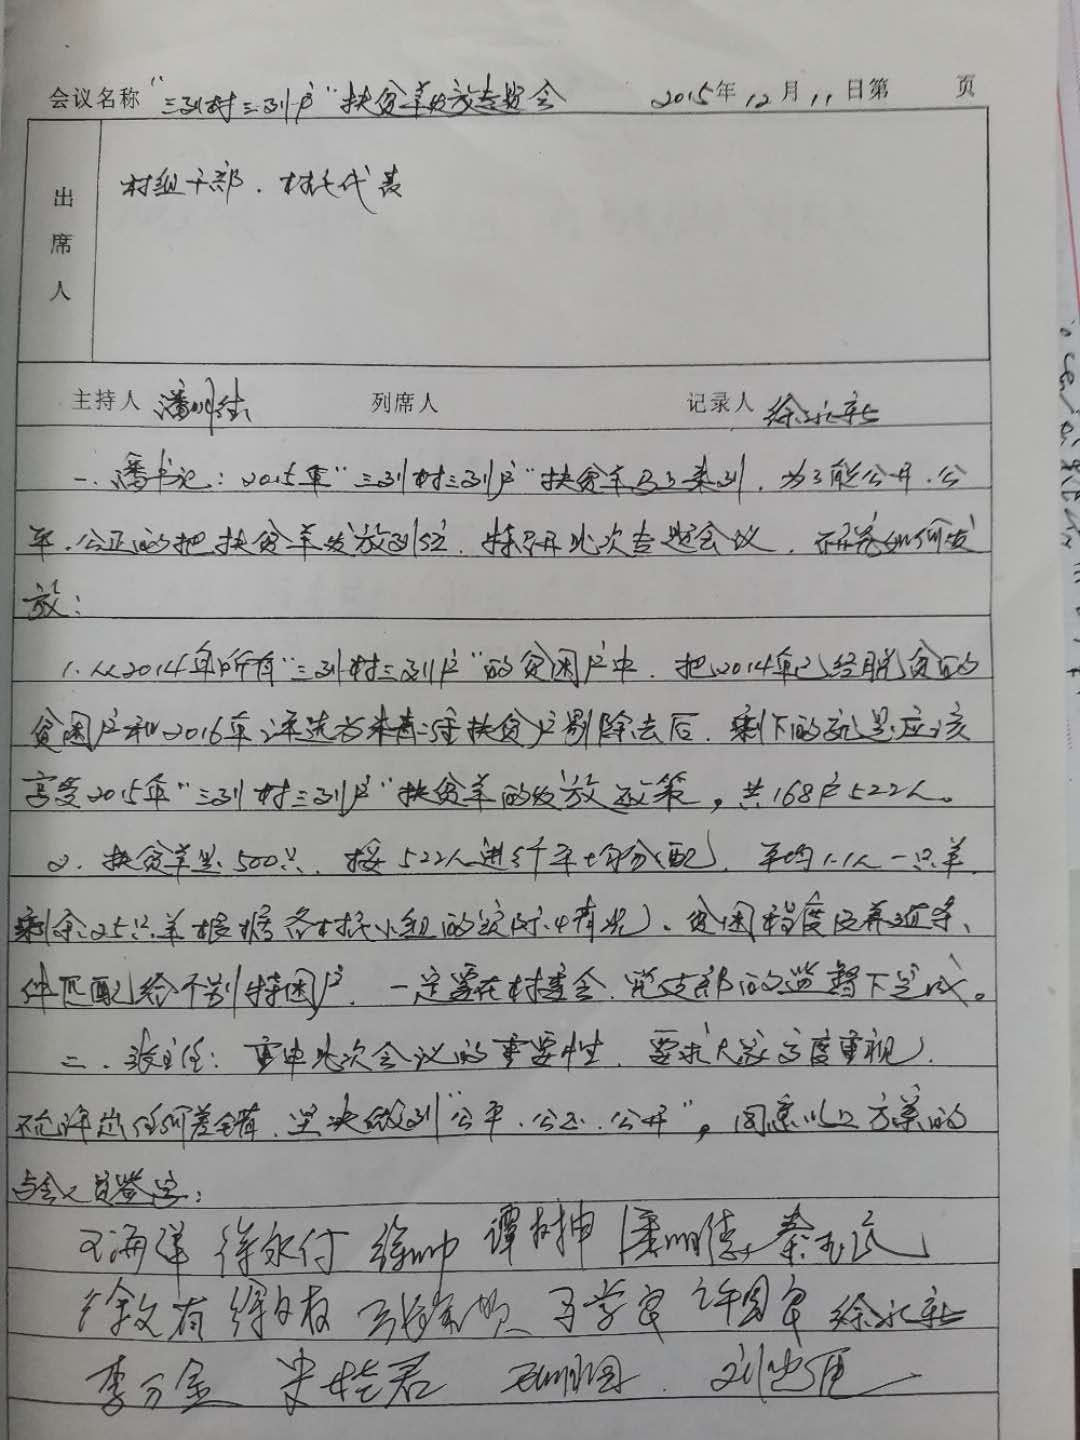 会议名称 "三到村三到户"扶贫羊发放专题会 2015年12月11日第 页
出席人 村组干部、村民代表
主持人 潘明 列席人 记录人 徐永
一、潘书记：2015年"三到村三到户"扶贫羊马上来到，为了能公开、公
平、公正的把扶贫羊发放到位，特召开此次专题会议，研究如何发
放：
1.从2014年所有"三到村三到户"的贫困户中，把2014年已经脱贫的
贫困户和2016年评选为扶贫户剔除去后，剩下的就是应该
享受2015年"三到村三到户"扶贫羊的发放政策，共168户522人。
2.扶贫羊是500只，按522人进行平均分配，平均1.1人一只羊，
剩余25只羊根据各村民小组的实际情况、贫困程度及养殖条
件匹配给个别特困户，一定要在村委会、党支部的监督下完成。
二、张主任：重申此次会议的重要性，要求大家高度重视，
不允许出任何差错，坚决做到"公平、公正、公开"，同意以上方案的
与会人员签字：
王海洋 徐永付 徐 谭树坤 潘明 秦
徐文有 徐 王学良 许国良 徐永
李万金 君 刘